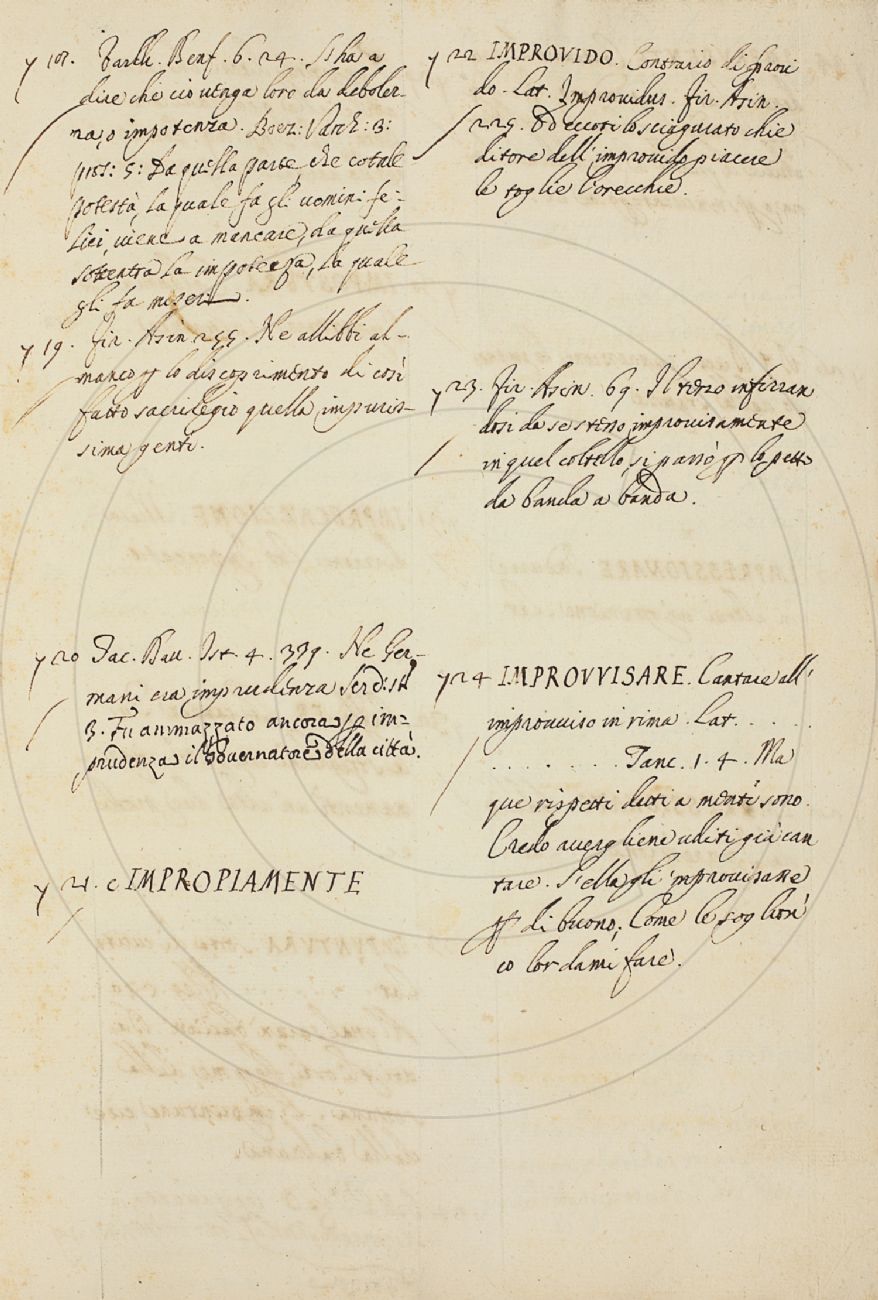 y 18. Varch. Benf. 6. 24. S'ha a
dire che ciò venga loro da deboler-
na, o impotenza. Boez: Varch: 3:
pros: 5: Da quella parte, che cotale
potestà, la quale fa gli uomini fe-
lici, viene a mancare, da quella
sottentra la impotenza, la quale
gli fa miseri.
y 19. Fir. Asin 255. Ne allibbi al-
manco p lo discoprimento di così
fatto sacrilegio quella impuris-
sima genti.
y 20 Tac. Dav. Ist. 4. 339. Ne Ger-
mani era imprudenza Serdist
3. Fu ammazzato ancora p im-
prudenza il Governatore della città.
y 21. e IMPROPIAMENTE
y 22 IMPROVIDO. Contrario di provi
do. Lat. Improvidus. Fir. Asin.
225. Ed eccoti lo sciagurato chie
ditore dell'improvido piacere
le toglie l'orecchie.
y 23. Fir. Asin. 69. Il terzo infizzan
dosi da se stesso improvisamente
in quel coltello, si passò p lo petto
da banda a banda.
y 24 IMPROVVISARE. Cantare all'
improvviso in rima. Lat. . . . .
. . . . . . . . Tanc. 1. 4. Ma
que rispetti detti a mente sono.
Credo avergliene uditi già can
tare. S'ella gli improvisasse
p di buono, Come le soglion'
co lor dami fare.